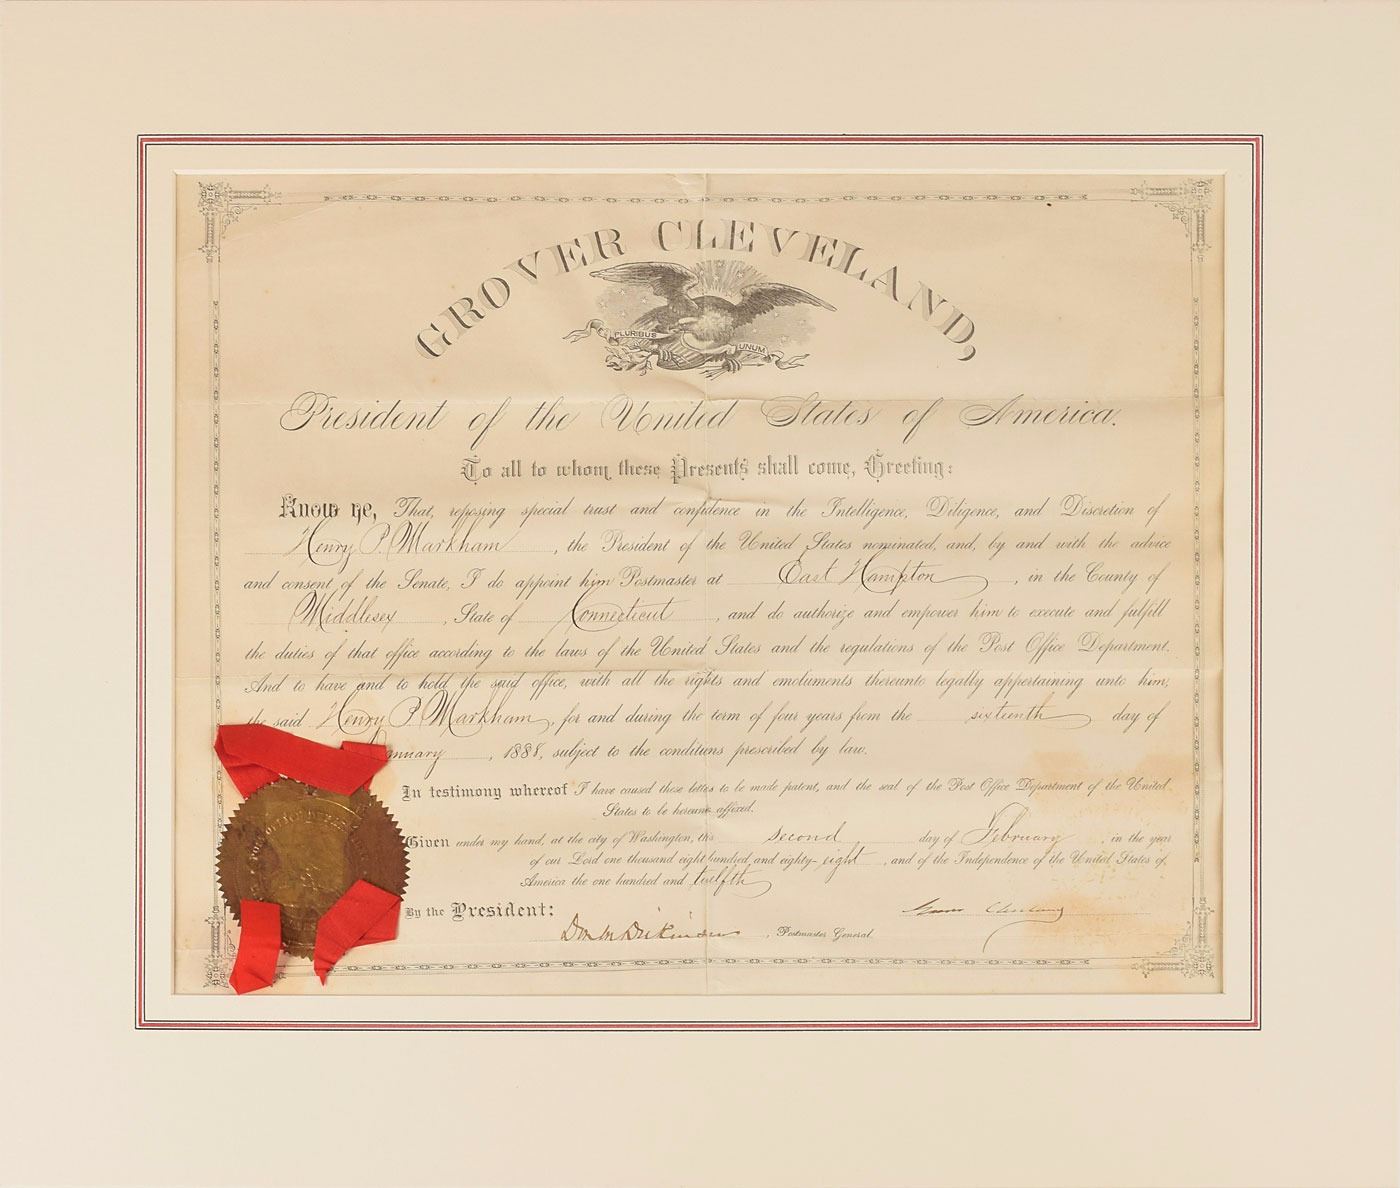 GROVER CLEVELAND,
PLURIBUS
UNUM
President of the United States of America.
To all to whom these Presents shall come, Greeting:
Know ye, That, reposing special trust and confidence in the Intelligence, Diligence, and Discretion of
Henry P. Markham, the President of the United States nominated, and, by and with the advice
and consent of the Senate, I do appoint him Postmaster at East Hampton, in the County of
Middlesex, State of Connecticut, and do authorize and empower him to execute and fulfill
the duties of that office according to the laws of the United States and the regulations of the Post Office Department.
And to have and to hold the said office, with all the rights and emoluments thereunto legally appertaining unto him,
the said Henry P. Markham, for and during the term of four years from the sixteenth day of
January, 1888, subject to the conditions prescribed by law.
In testimony whereof I have caused these letters to be made patent, and the seal of the Post Office Department of the United
States to be hereunto affixed.
Given under my hand, at the city of Washington, this second day of February in the year
of our Lord one thousand eight hundred and eighty-eight, and of the Independence of the United States of
America the one hundred and twelfth
By the President:
Grover Cleveland
Don M. Dickinson, Postmaster General.